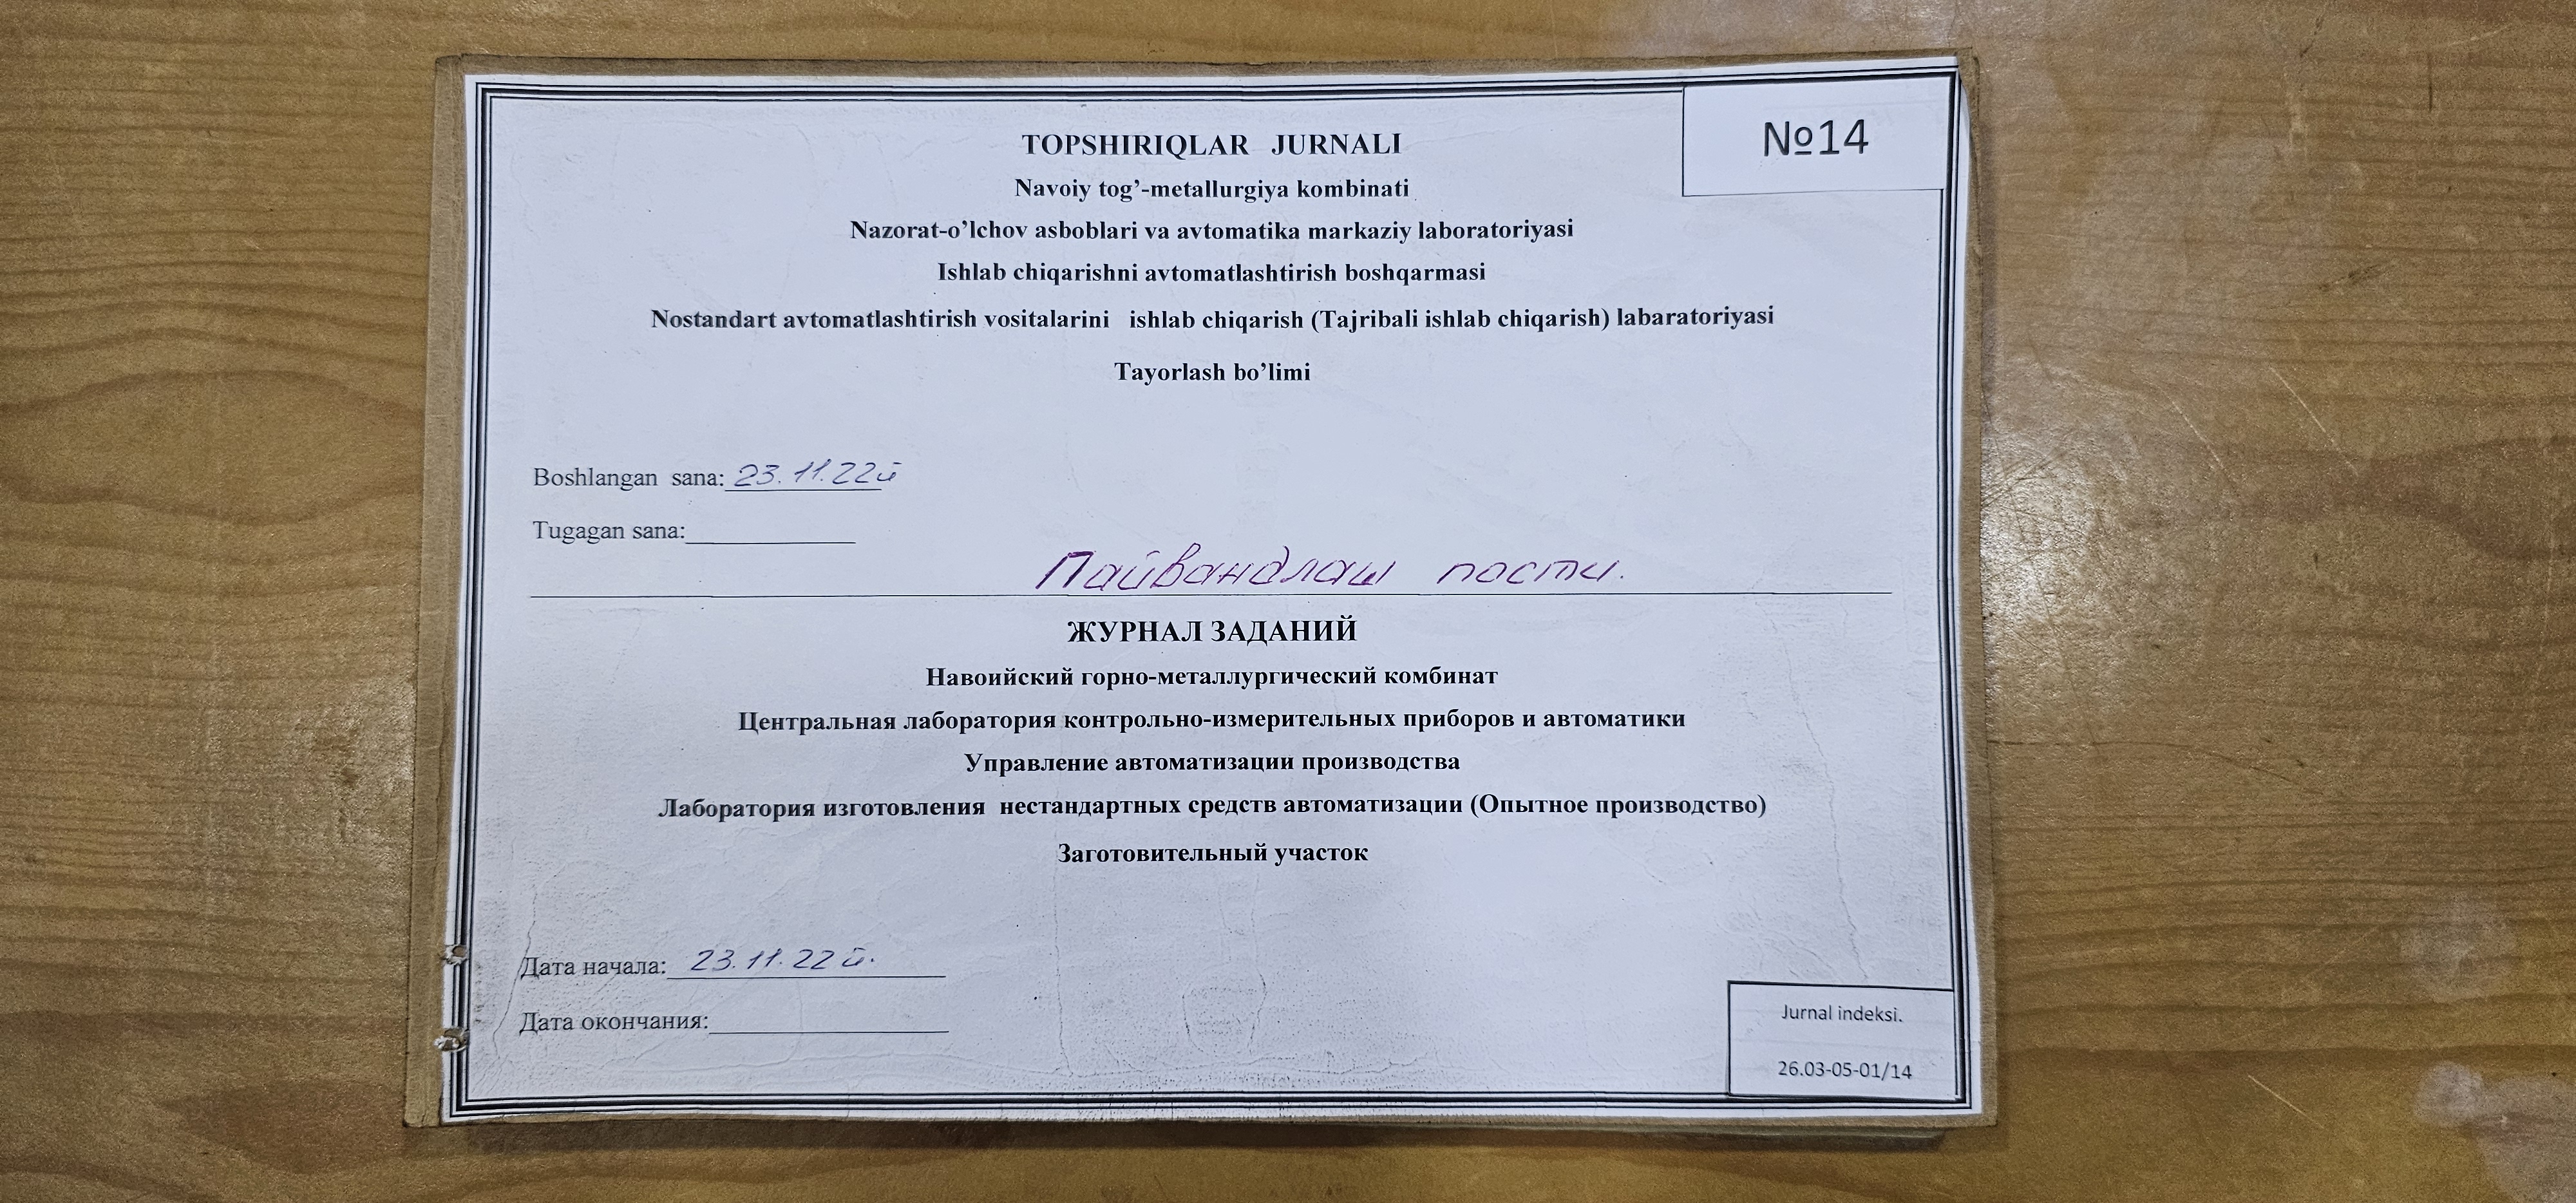 №14
TOPSHIRIQLAR JURNALI
Navoiy tog’-metallurgiya kombinati
Nazorat-o’lchov asboblari va avtomatika markaziy laboratoriyasi
Ishlab chiqarishni avtomatlashtirish boshqarmasi
Nostandart avtomatlashtirish vositalarini ishlab chiqarish (Tajribali ishlab chiqarish) labaratoriyasi
Tayorlash bo’limi
Boshlangan sana: 23.11.22й
Tugagan sana:
Пайвандлаш пости.
ЖУРНАЛ ЗАДАНИЙ
Навоийский горно-металлургический комбинат
Центральная лаборатория контрольно-измерительных приборов и автоматики
Управление автоматизации производства
Лаборатория изготовления нестандартных средств автоматизации (Опытное производство)
Заготовительный участок
Дата начала: 23.11.22й.
Дата окончания:
Jurnal indeksi.
26.03-05-01/14